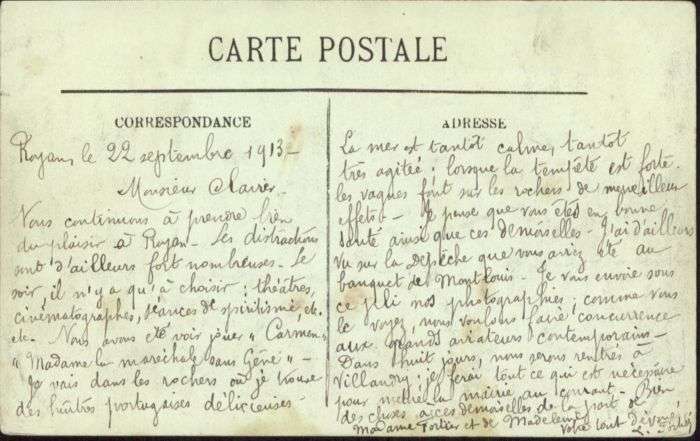 CARTE POSTALE
CORRESPONDANCE
Royan, le 22 septembre 1913 —
Monsieur
Nous continuons à prendre bien
du plaisir à Royan — Les distractions
sont d'ailleurs fort nombreuses — Le
soir, il n'y a qu'à choisir : théâtres,
cinématographes, séances de spiritisme etc.
etc — Nous avons été voir jouer "Carmen"
"Madame la maréchale sans Gêne" —
Je vais dans les rochers où je trouve
des huîtres portugaises délicieuses —
ADRESSE
La mer est tantôt calme, tantôt
très agitée ; lorsque la tempête est forte
les vagues font sur les rochers de merveilleux
effets — Je pense que vous êtes en bonne
santé ainsi que ces demoiselles — J'ai d'ailleurs
vu sur la Dépêche que vous aviez été au
banquet de Montlouis — Je vous envoie sous
ce pli nos photographies ; comme vous
le voyez, nous voulons faire concurrence
aux grands aviateurs contemporains —
Dans huit jours, nous serons rentrés à
Villandry ; je ferai tout ce qui est nécessaire
pour mettre la mairie au courant — Bien
des choses à ces demoiselles de la part de
Madame et de Madeleine
Votre tout dévoué